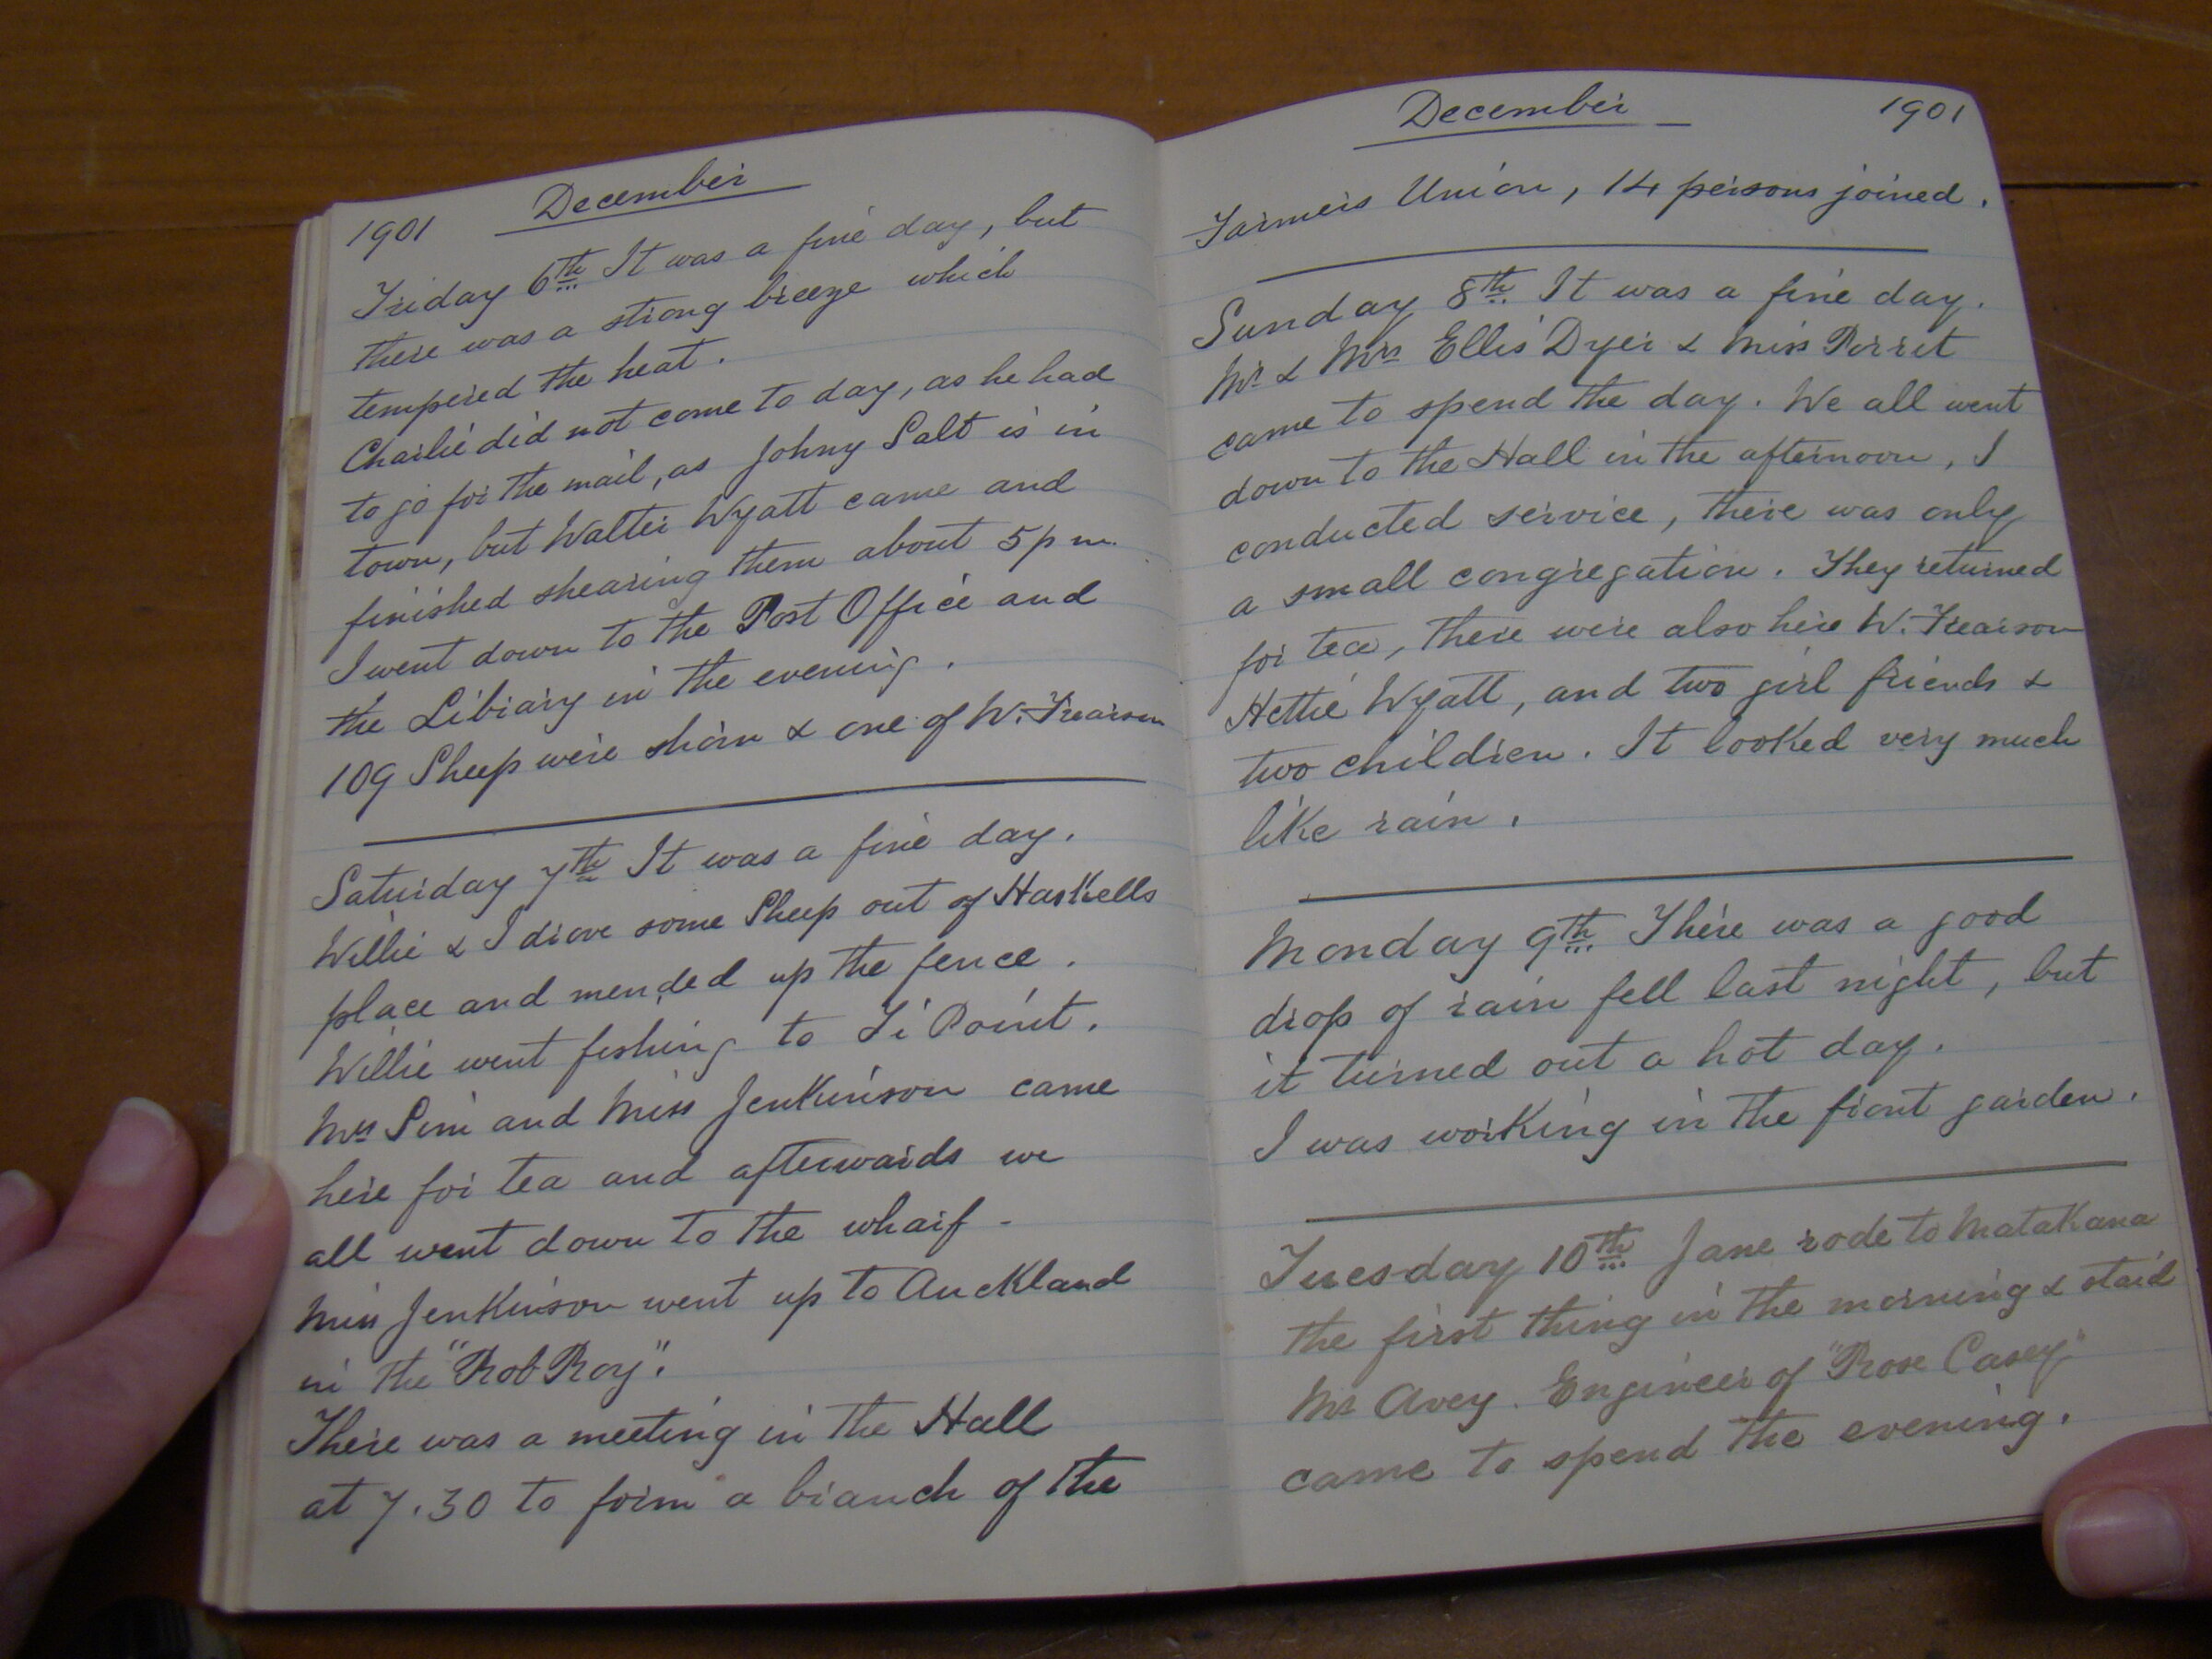 1901 December
Friday 6th It was a fine day, but
there was a strong breeze which
tempered the heat.
Charlie did not come to day, as he had
to go for the mail, as Johny Salt is in
town, but Walter Wyatt came and
finished shearing them about 5 pm.
I went down to the Post Office and
the Library in the evening.
109 Sheep were shorn & one of W. Frearson
Saturday 7th It was a fine day.
Willie & I drove some Sheep out of Haskells
place and mended up the fence.
Willie went fishing to Ti Point.
Mrs and Miss Jenkinson came
here for tea and afterwards we
all went down to the wharf -
Miss Jenkinson went up to Auckland
in the "Rob Roy".
There was a meeting in the Hall
at 7.30 to form a branch of the
December 1901
Farmers Union, 14 persons joined.
Sunday 8th It was a fine day.
Mr & Mrs Ellis Dyer & Miss
came to spend the day. We all went
down to the Hall in the afternoon, I
conducted service, there was only
a small congregation. They returned
for tea, there were also here W. Frearson
Hettie Wyatt, and two girl friends &
two children. It looked very much
like rain.
Monday 9th There was a good
drop of rain fell last night, but
it turned out a hot day.
I was working in the front garden.
Tuesday 10th Jane rode to Matakana
the first thing in the morning & staid
Mr Avey. Engineer of "Rose Casey"
came to spend the evening.